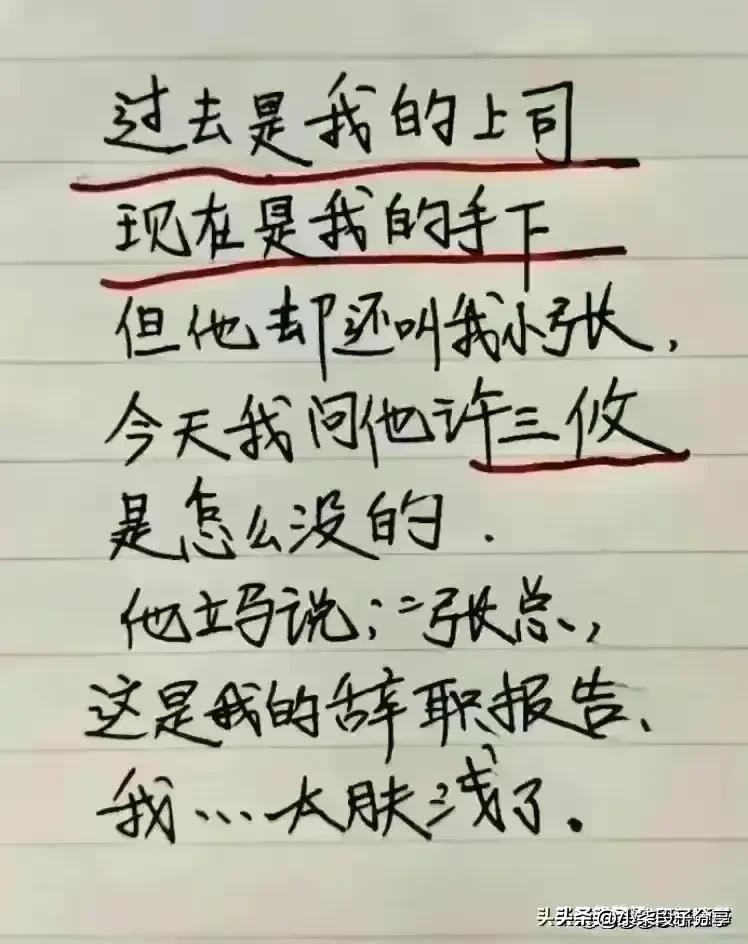 过去是我的上司
现在是我的手下
但他却还叫我小张，
今天我问他许三攸
是怎么没的．
他立马说；二张总、，
这是我的辞职报告、
我…太肤浅了。